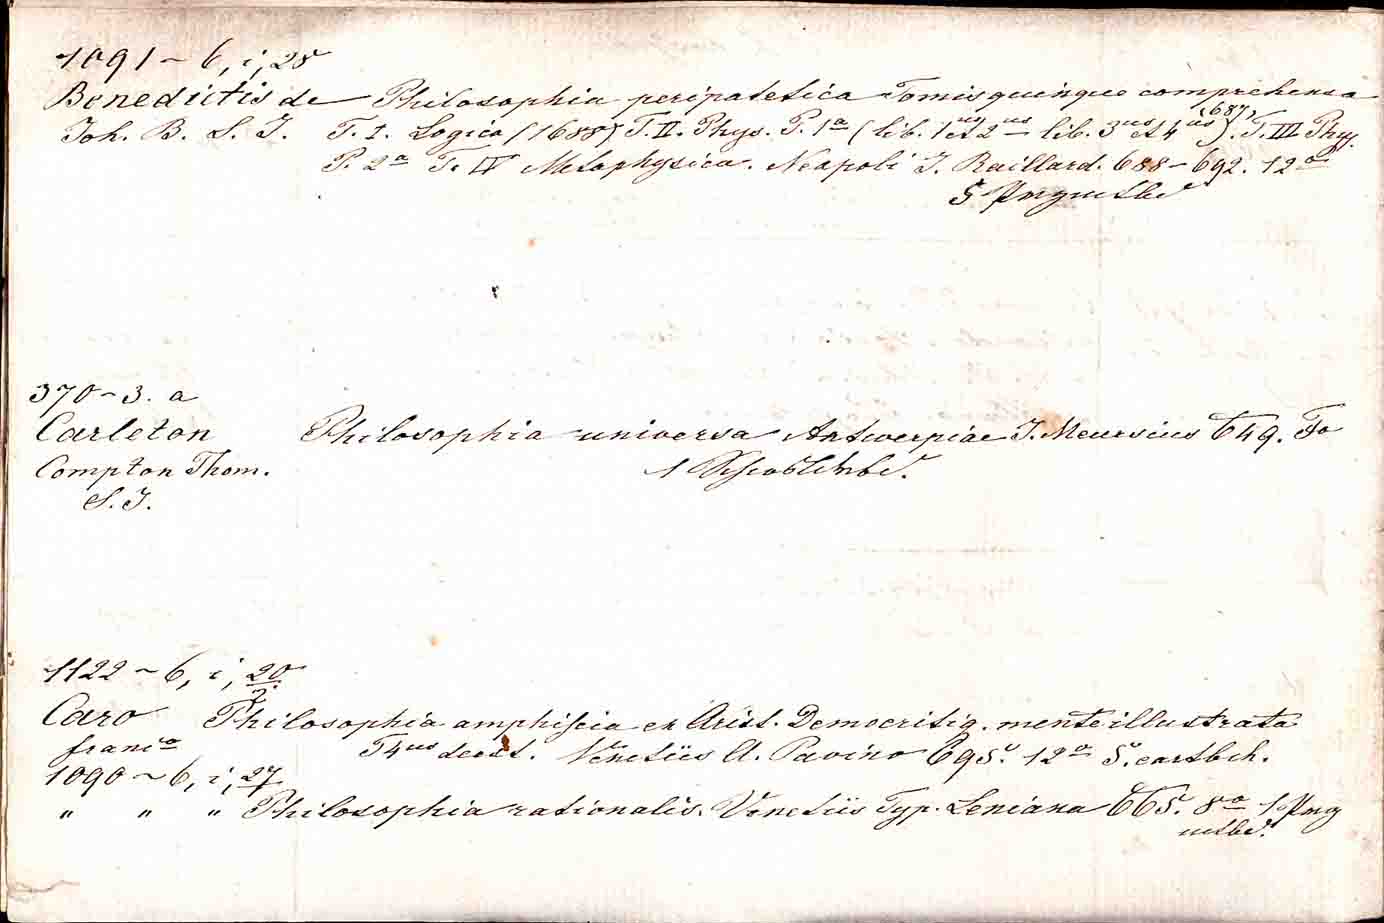 1091 ~ 6, i, 28
Benedictis de Philosophia peripatetica Tomis quinque comprehensa
Joh. B. S. J. T. I. Logica (1688) T. II. Phys. P. 1a (lib. 1us et 2us lib. 3us et 4us (687). T. III Phys.
P. 2a T. IV Metaphysica. Neapoli J. Raillard. 688 - 692. 12o
5 Prgmtbd
370 ~ 3. a
Carleton Philosophia universa Antwerpiae J. Meursius 649. Fo
Compton Thom. 1
S. J.
1122 ~ 6, i, 20
2.
Caro Philosophia amphiscia ex Arist. Democritiq. mente illustrata
franco T 4us deest. Venetiis A. Pavino 695. 12o 5. cartbch.
1090 ~ 6, i, 27
" " " Philosophia rationalis. Venetiis Typ. Leniana 665. 8o 1 Prg
mtbd.